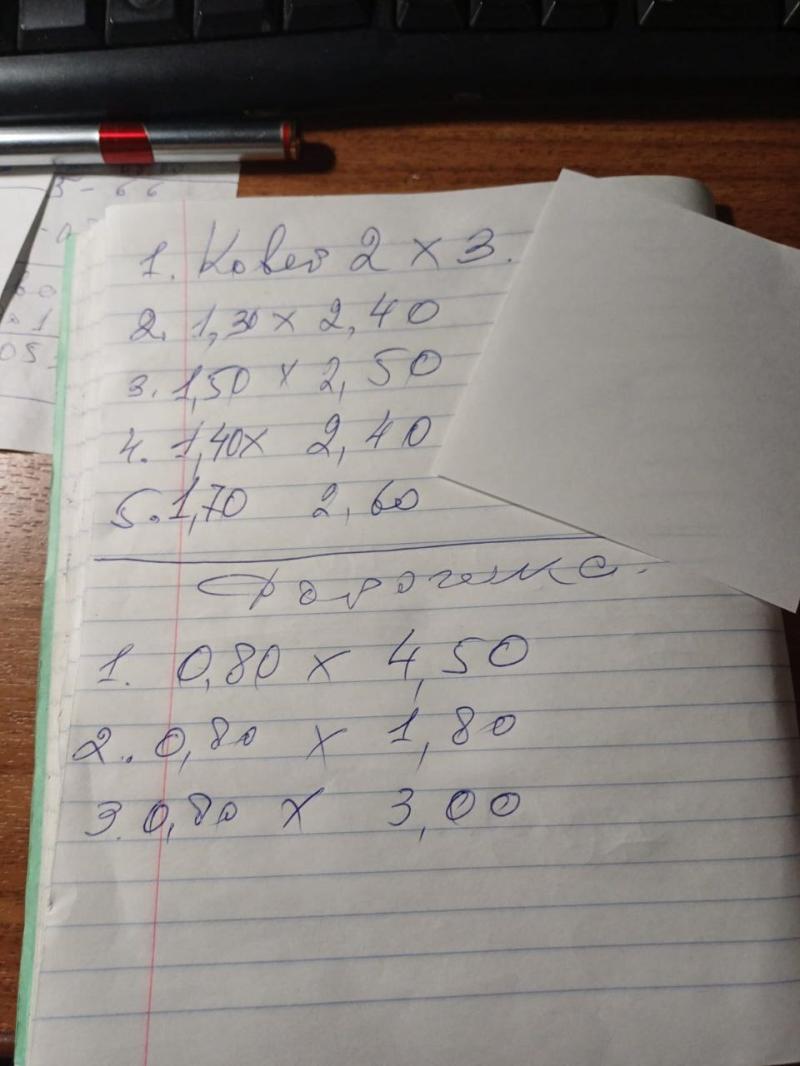 5 - 66
1. Ковер 2 х 3.
2. 1,30 х 2,40
3. 1,50 х 2,50
4. 1,40х 2,40
5. 1,70 2,60
Дорожка.
1. 0,80 х 4,50
2. 0,80 х 1,80
3. 0,80 х 3,00